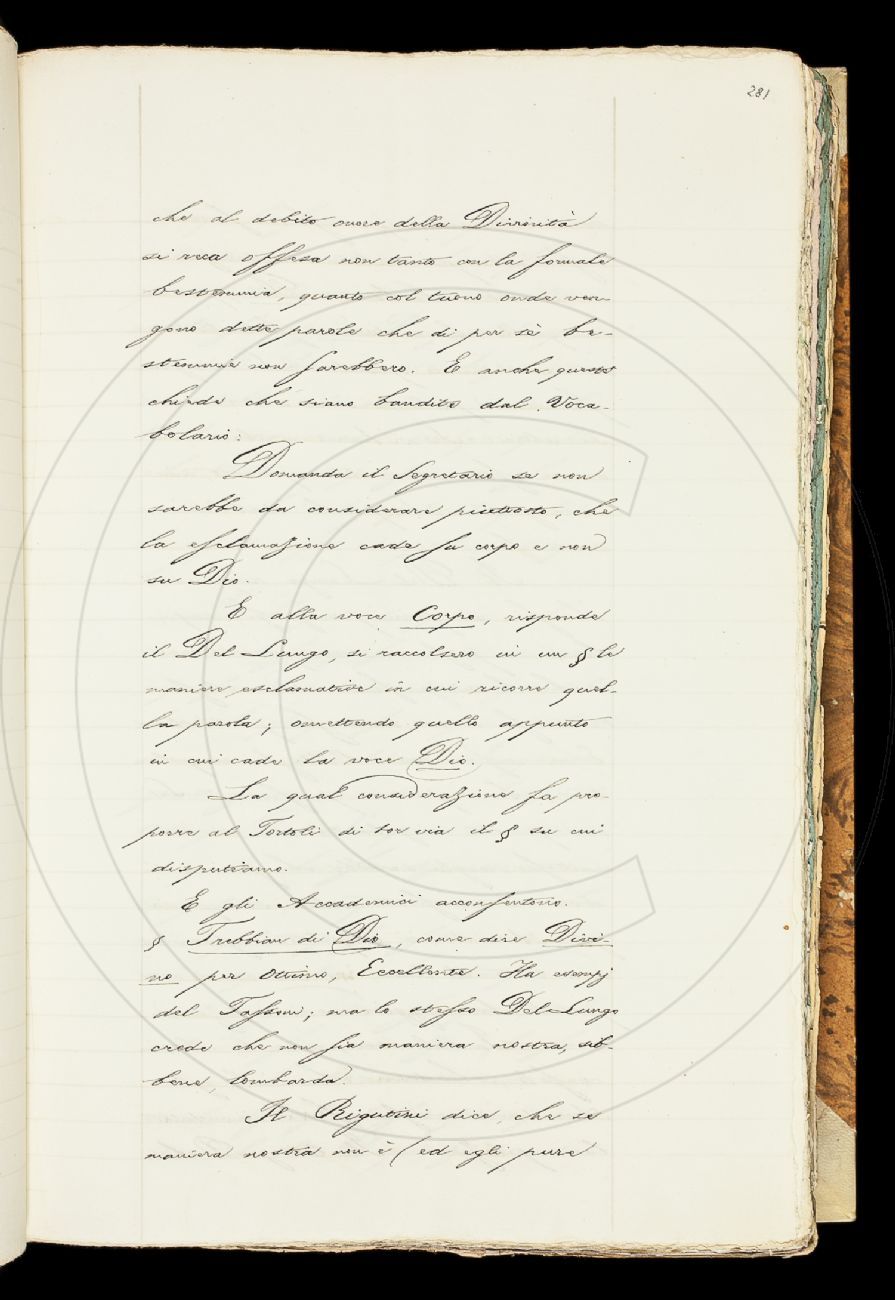 281
che al debito onore della Divinità
si reca offesa non tanto con la formale
bestemmia, quanto col tuono onde ven-
gono dette parole che di per sè be-
stemmie non sarebbero. E anche questo
chiede che siano bandito dal Voca-
bolario:
Domanda il Segretario se non
sarebbe da considerare piuttosto, che
la esclamazione cade su corpo e non
su Dio.
E alla voce Corpo, risponde
il Del Lungo, si raccolsero in un § le
maniere esclamative in cui ricorre quel-
la parola; omettendo quello appunto
in cui cade la voce Dio.
La qual considerazione fa pro-
porre al Tortoli di tor via il § su cui
disputiamo.
E gli Accademici acconsentono.
§ Trebbian di Dio, come dire Divi-
no per Ottimo, Eccellente. Ha esempj
del Tassoni; ma lo stesso Del Lungo
crede che non sia maniera nostra, sib-
bene, lombarda.
Il Rigutini dice, che se
maniera nostra non è (ed egli pure